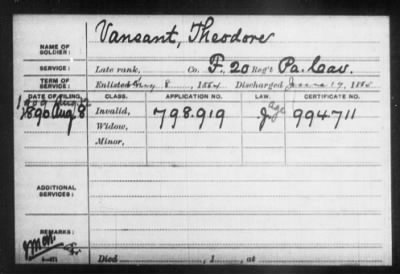 NAME OF SOLDIER: Vansant, Theodore
SERVICE: Late rank, Co. F, 20 Reg't Pa. Cav.
TERM OF SERVICE: Enlisted 8, 1864 Discharged June 17, 1865
DATE OF FILING. CLASS. APPLICATION NO. LAW. CERTIFICATE NO.
1890 Aug. 8 Invalid, 798.919 994711
Widow,
Minor,
ADDITIONAL SERVICES:
REMARKS:
Died , 1 , at